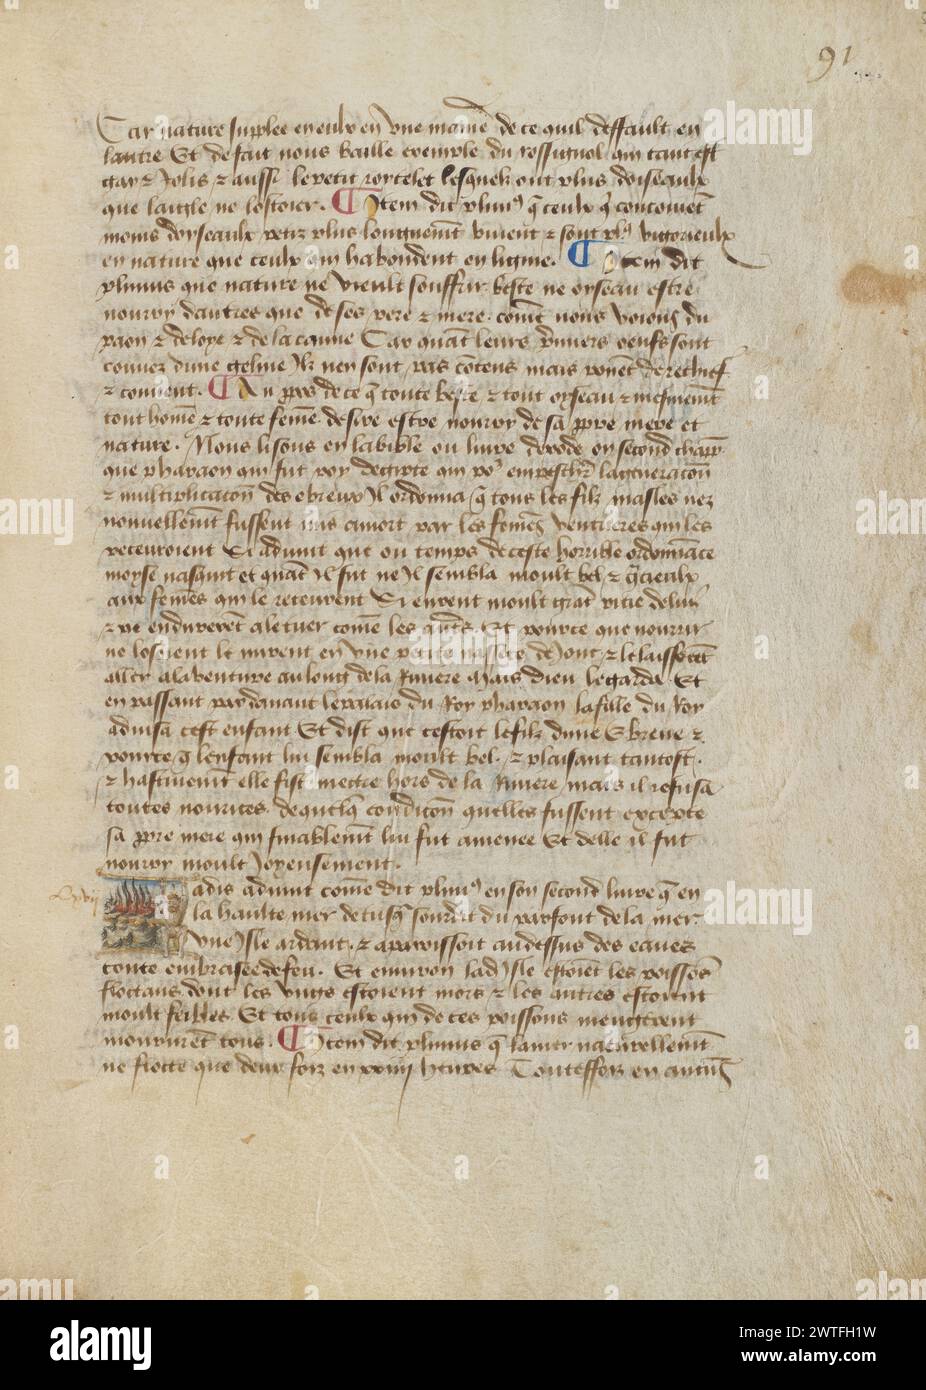 91
Car nature supplee en eulx en une maniē de ce quil deffault en
lautre Et de fait nous baille exemple du rossignol qui tant est
gay ⁊ Jolis ⁊ aussi le petit roytelet lesquelz ont plus doiseaulx
que laigle ne lostoir. ¶ Item dit pliniꝰ q̄ ceulx q̄ concoiuēt
moins doyseaulx petiz plus longuemēt viuent ⁊ sont plꝰ vigorieulx
en nature que ceulx qui habondent en ligne. ¶ Item dit
plinius que nature ne vieult souffrir beste ne oyseau estre
nourry dautres que de ses pere ⁊ mere. comē nous voions du
paon ⁊ de loye ⁊ de la canne Car quāt leurs p̄miers oeufs sont
couuez dune geline Ilz nen sont pas cōtens mais ponēt de rechief
⁊ couuent. ¶ Au ppos de ce q̄ toute beste ⁊ tout oyseau ⁊ mesmemēt
tout homē ⁊ toute femē desire estre nourry de sa ppre mere et
nature. Nous lisons en la bible ou liure dexode ou second chapp̄
que pharaon qui fut roy degipte qui poꝰ empescher la generacōn
⁊ multiplicacōn des ebreux Il ordonna q̄ tous les filz masles nez
nouuellemēt fussent mis a mort par les femēs ventrieres qui les
receuroient Si aduint que ou temps de ceste horrible ordonnāce
moyse nasquit et quāt Il fut ne Il sembla moult bel ⁊ gcieulx
aux femēs qui le receurent Si eurent moult grāt pitie de luy
⁊ ne endurerēt a le tuer comē les autēs. Et pource que nourrir
ne losoient le mirent en vne petite nassele de Jonc ⁊ le laisserēt
aller a laventure au long de la Riuiere Mais dieu le garda Et
en passant par deuant le palaio du Roy pharaon la fille du Roy
aduisa cest enfant Et dist que cestoit le filz dune Ebreue ⁊
pource q̄ lenfant lui sembla moult bel. ⁊ plaisant tantost.
⁊ hastiuemēt elle fist mectre hors de la Riuiere mais il refusa
toutes nourrices de quelq̄ condicōn quelles fussent excepte
sa ppre mere qui finablemēt lui fut amenee Et delle il fut
nourry moult Joyeusement.
Jadis aduint comē dit pliniꝰ en son second liure q̄ en
la haulte mer de tusq̄ sourdit du parfont de la mer
vne Isle ardant. ⁊ apparissoit au dessus des eaues
toute embrasee de feu. Et enuiron lad Isle estoiēt les poissōs
floctans dont les vngs estoient mors ⁊ les autres estoient
moult feibles. Et tous ceulx qui de ces poissons mengerent
moururēt tous. ¶ Item dit plinius q̄ la mer naturellemēt
ne flocte que deux foiz en xxiiij heures Touteffoiz en aucūs
alamy
Image ID: 2WTFH1W
www.alamy.com